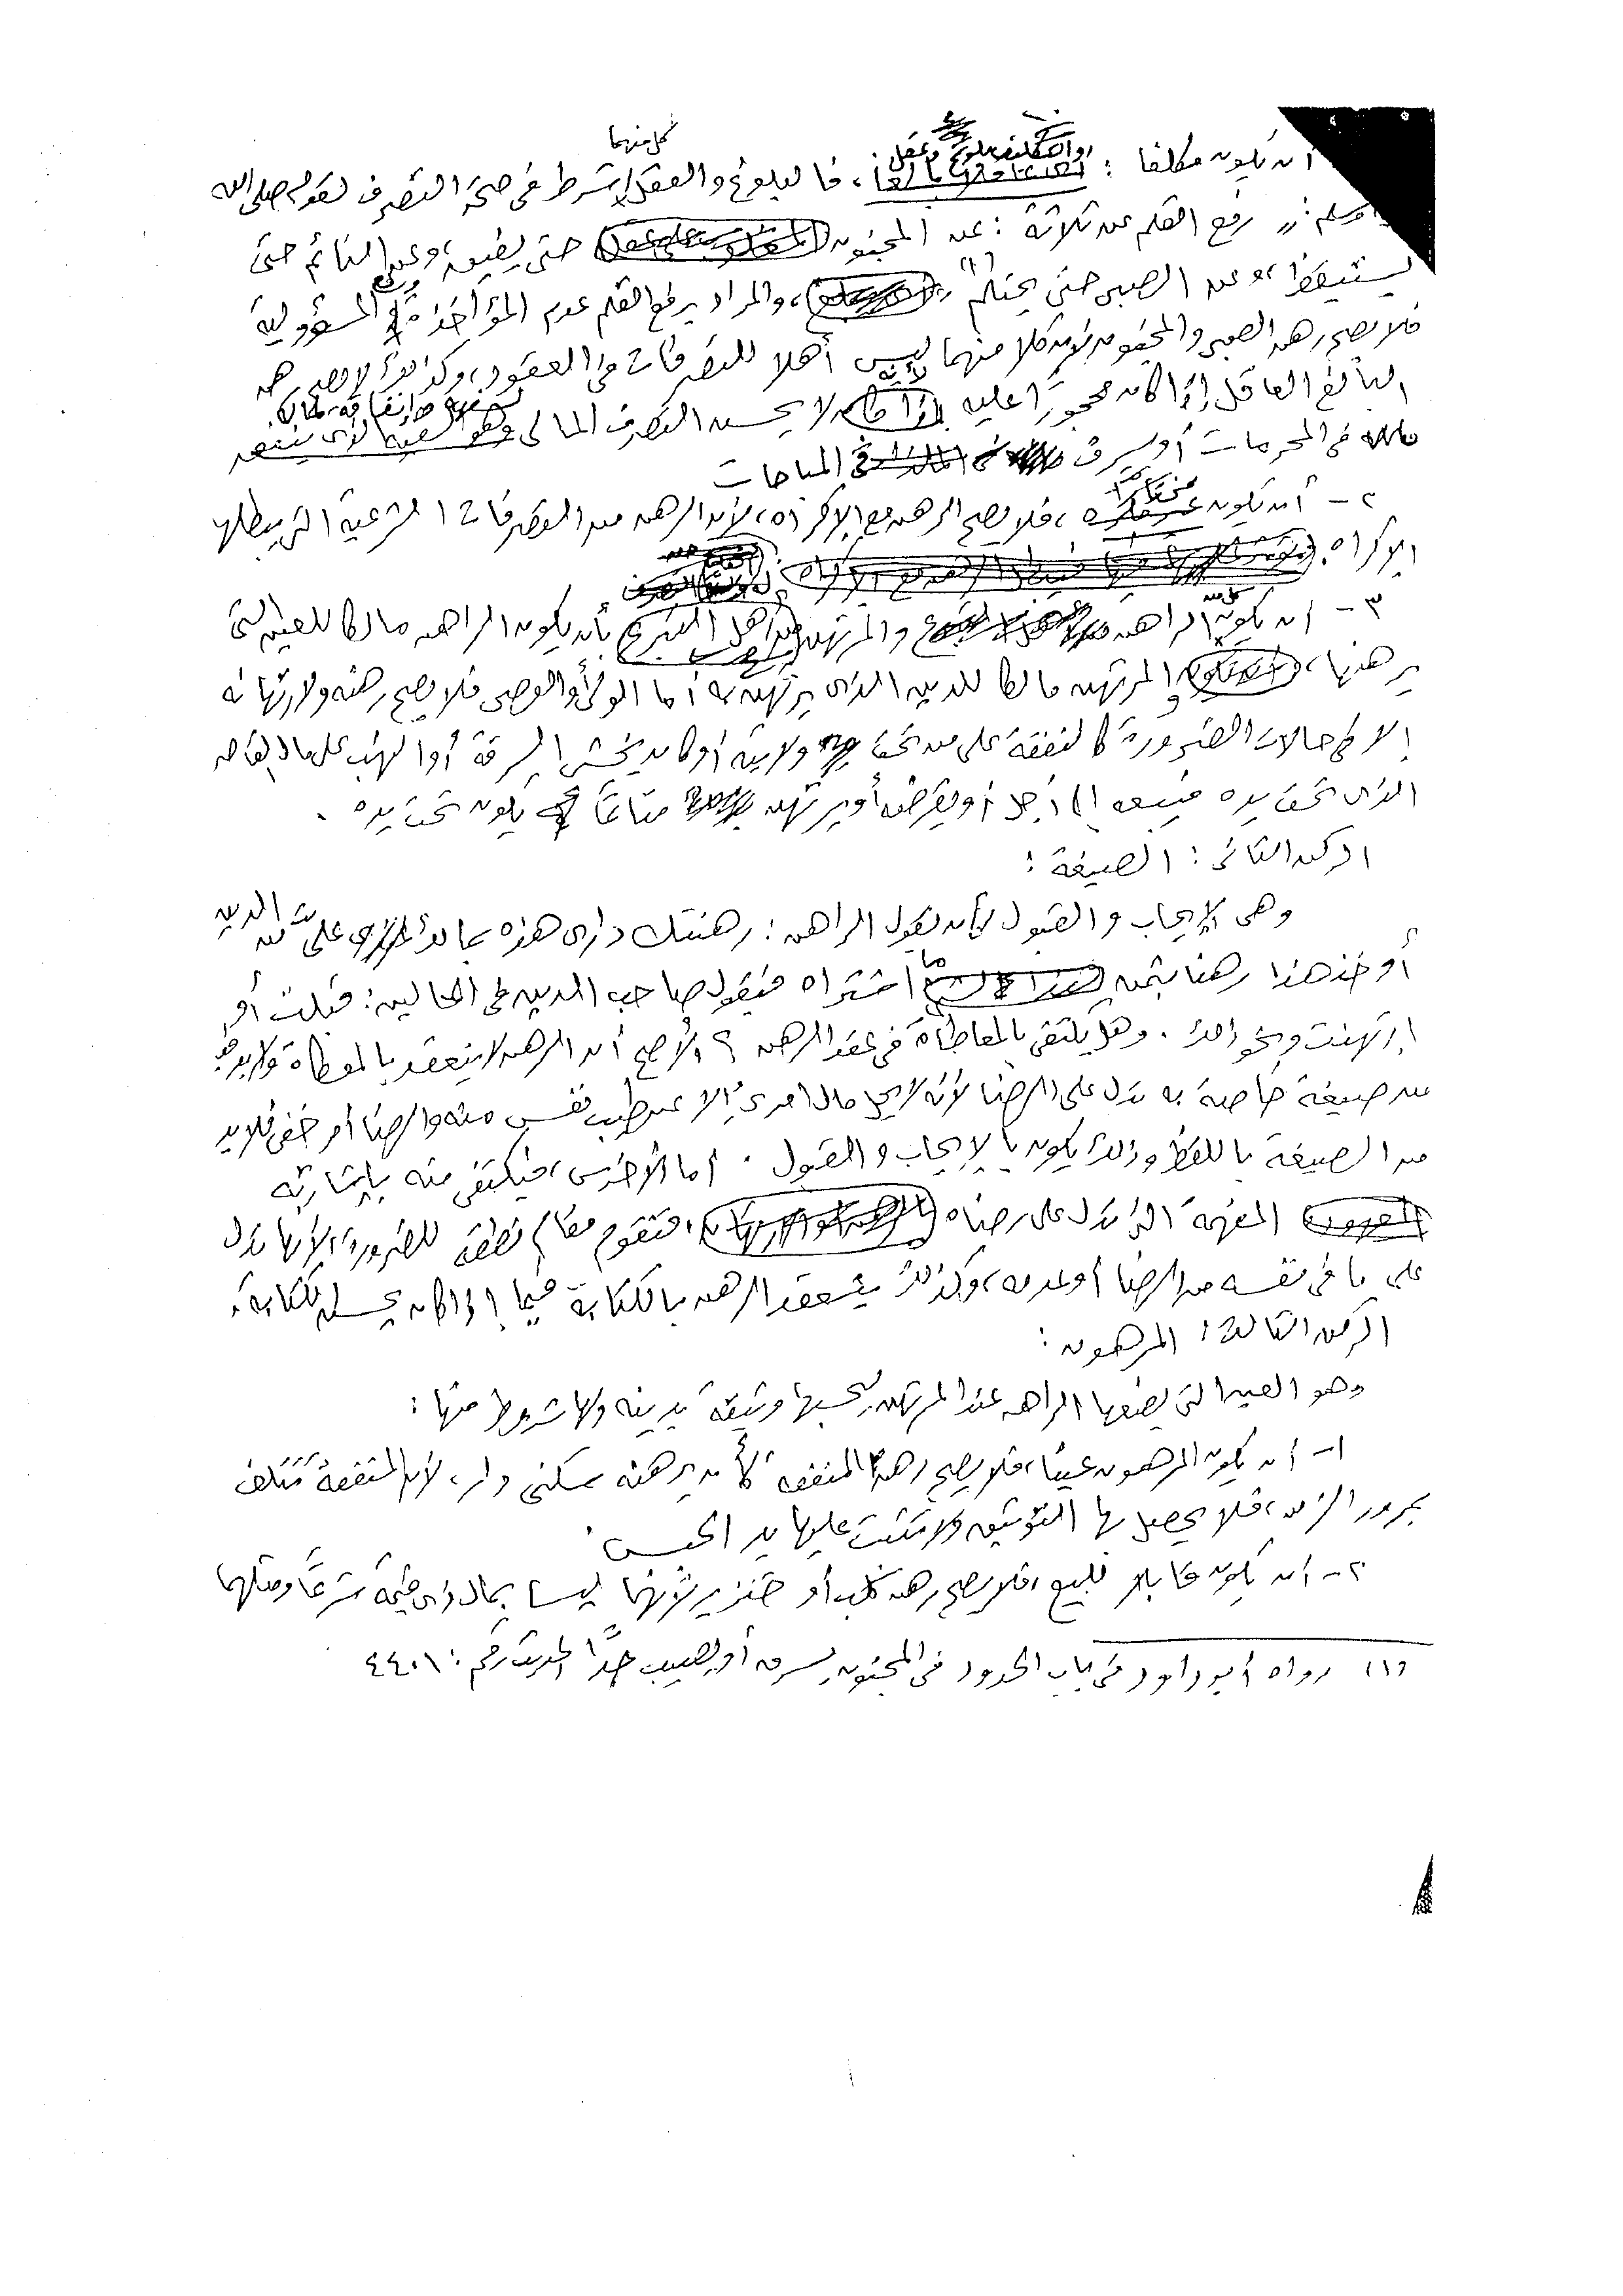 أن يكون مكلفا : والتكليف بلوغ وعقل ، فالبلوغ والعقل كل منهما شرط في صحة التصرف لقوله صلى الله
وسلم : رفع القلم عن ثلاثة : عن المجنون حتى يفيق ، وعن النائم حتى
يستيقظ ، وعن الصبى حتى يحتلم (١) ، والمراد برفع القلم عدم المؤاخذة ورفع المسؤولية
فلا يصح رهن الصبي والمجنون لأن كلا منهما ليس أهلا للتصرفات في العقود ، وكذلك لا يصح رهن
البالغ العاقل إذا كان محجورًا عليه لأنه لا يحسن التصرف المالي وهو السفيه الذى ينفق
ماله في المحرمات أو يسرف في المباحات
٢ - أن يكون مختارًا ، فلا يصح الرهن مع الإكراه ، لأن الرهن من التصرفات الشرعية التي يبطلها
الإكراه .
٣ - أن يكون كل من الراهن والمرتهن من أهل التبرع بأن يكون الراهن مالكا للعين التي
يرهنها ، والمرتهن مالكا للدين الذى يرتهن به أما الولى أو الوصى فلا يصح رهنه ولا ارتهانه
إلا في حالات الضرورة كالنفقة على من تحت ولايته أو كان يخشى السرقة أو النهب على مال
الذى تحت يده فيبيعه إلى أجل أو يقرضه أو يرتهن متاعًا يكون تحت يده .
الركن الثانى : الصيغة :
وهي الإيجاب والقبول كأن يقول الراهن : رهنتك دارى هذه بمالك على من الدين
أو خذ هذا رهنا بثمن ما اشتراه فيقول صاحب الدين في الحالين : قبلت أو
ارتهنت ونحو ذلك . وهل يكتفى بالمعاطاة في عقد الرهن ؟ الأصح أن الرهن لا ينعقد بالمعاطاة ولا بد فيه
من صيغة خاصة به تدل على الرضا لأنه لا يحل مال امرئ إلا عن طيب نفس منه والرضا أمر خفى فلا بد
من الصيغة باللفظ وذلك يكون بالإيجاب والقبول . أما الأخرس ، فيكتفى منه بإشارته
المفهمة التي تدل على رضاه ، فتقوم مقام نطقه للضرورة ، لأنها تدل
على ما في نفسه من الرضا أو عدمه ، وكذلك ينعقد الرهن بالكتابة فيما إذا كان يحسن الكتابة .
الركن الثالث : المرهون :
وهو العين التي يضعها الراهن عند المرتهن ليحبسها وثيقة بدينه ولها شروط منها :
١ - أن يكون المرهون عينًا ، فلا يصح رهن المنفعة كأن يرهنه سكنى دار ، لأن المنفعة تتلف
بمرور الزمن ، فلا يحصل بها التوثيق ولا تثبت عليها يد الحبس .
٢ - أن يكون قابلا للبيع ، فلا يصح رهن كلب أو خنزير لأنهما ليسا بمال ذى قيمة شرعًا ومثلهما
(١) رواه أبو داود في باب الحدود في المجنون يسرق أو يصيب حدًا الحديث رقم : ٤٤٠١